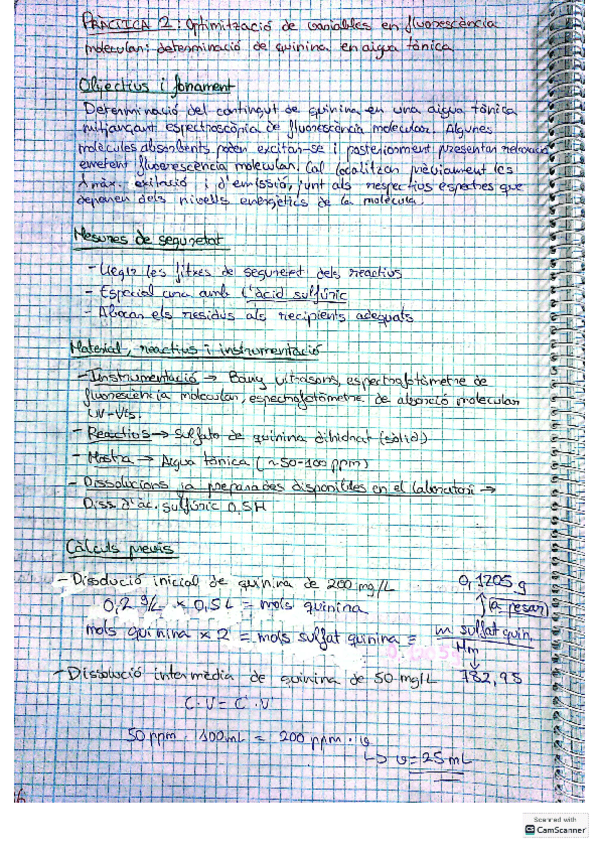 PRÀCTICA 2: Optimització de variables en fluorescència
molecular: determinació de quinina en aigua tònica
Objectius i fonament
Determinació del contingut de quinina en una aigua tònica
mitjançant espectroscòpia de fluorescència molecular. Algunes
molècules absorbents poden excitar-se i posteriorment presentar relaxació
emetent fluorescència molecular. Cal localitzar prèviament les
λ màx. exitació i d'emissió, junt als respectius espectres que
depenen dels nivells energètics de la molècula.
Mesures de seguretat
- Llegir les fitxes de seguretat dels reactius
- Especial cura amb l'àcid sulfúric
- Abocar els residus als recipients adequats
Material, reactius i instrumentació
- Instrumentació → Bany ultrasons, espectrofotòmetre de
fluorescència molecular, espectrofotòmetre de absorció molecular
UV-Vis.
- Reactius → Sulfato de quinina dihidrat (sòlid)
- Mostra → Aigua tònica (~50-100 ppm)
- Dissolucions ja preparades disponibles en el laboratori →
Diss. d'àc. sulfúric 0,5M
Càlculs previs
- Dissolució inicial de quinina de 200 mg/L 0,1205 g
0,2 g/L × 0,5 L = mols quinina ↑ (a pesar)
mols quinina × 2 = mols sulfat quinina = m sulfat quin. / Mm
- Dissolució intermèdia de quinina de 50 mg/L 782,95
C · V = C' · V'
50 ppm · 100 mL = 200 ppm · v
↳ v = 25 mL
Scanned with
CS CamScanner